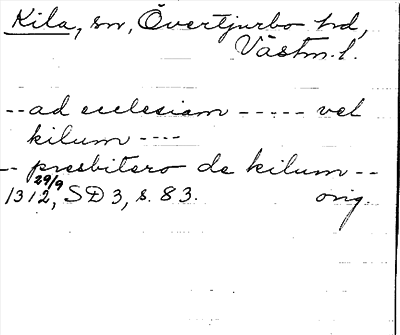 Kila, sn, Övertjurbo hd,
Västm. l.
-- ad ecclesiam ----- vel
kilum ----
-- presbitero de kilum --
29/9
1312, SD 3, s. 83. orig.